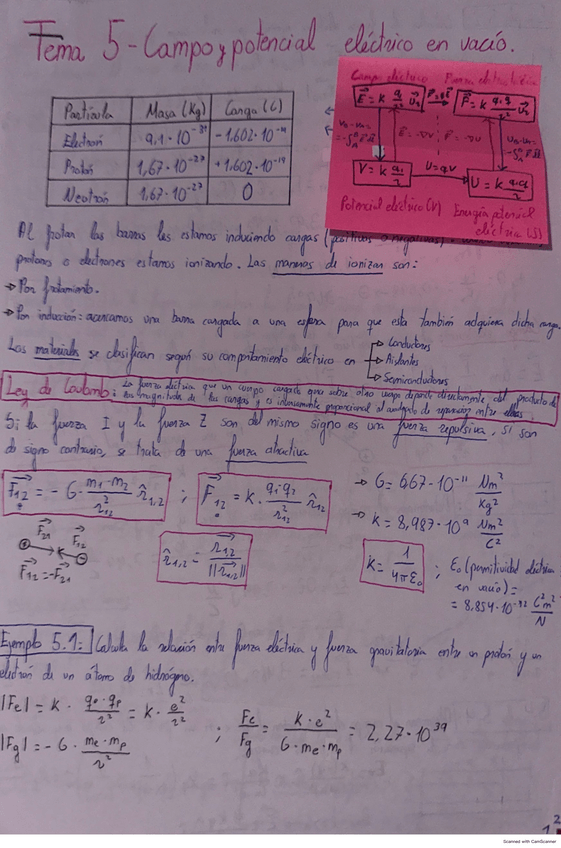 Tema 5 - Campo y potencial eléctrico en vacío.
Campo eléctrico Fuerza electrostática
E = K q₁/r² Ur F = qE F = K q·q/r² Ur
VB-VA = -∫ E dl E = -∇V F = -∇U UB-UA = -∫ F dl
V = K q₁/r U = q·V U = K q·q₂/r
Potencial eléctrico (V) Energía potencial
eléctrica (J)
Partícula Masa (Kg) Carga (C)
Electrón 9,1·10⁻³¹ -1,602·10⁻¹⁹
Protón 1,67·10⁻²⁷ +1,602·10⁻¹⁹
Neutrón 1,67·10⁻²⁷ 0
Al frotar las barras les estamos induciendo cargas (positivas o negativas).
protones o electrones estamos ionizando. Las maneras de ionizar son:
→ Por frotamiento.
→ Por inducción: acercamos una barra cargada a una esfera para que esta también adquiera dicha carga.
Los materiales se clasifican según su comportamiento eléctrico en → Conductores
→ Aislantes
→ Semiconductores
Ley de Coulomb: La fuerza eléctrica que un cuerpo cargado ejerce sobre otro cuerpo depende directamente del producto de
las magnitudes de las cargas y es inversamente proporcional al cuadrado de separación entre ellas.
Si la fuerza I y la fuerza Z son del mismo signo es una fuerza repulsiva, si son
de signo contrario, se trata de una fuerza atractiva
F₁₂ = - G · m₁·m₂/r²₁₂ r̂₁,₂ ; F₁₂ = K · q₁·q₂/r²₁₂ r̂₁₂ → G = 6,67·10⁻¹¹ Nm²/Kg²
→ K = 8,987·10⁹ Nm²/C²
F₂₁ F₁₂
F₁₂ = -F₂₁
r̂₁,₂ = r₁,₂/||r₁,₂|| K = 1/4πε₀ ; ε₀ (permitividad eléctrica
en vacío) =
= 8,854·10⁻¹² C²m²/N
Ejemplo 5.1: Calcula la relación entre fuerza eléctrica y fuerza gravitatoria entre un protón y un
electrón de un átomo de hidrógeno.
|Fe| = K · qe·qp/r² = K · e²/r² ; Fe/Fg = K·e²/G·me·mp = 2,27·10³⁹
|Fg| = - G · me·mp/r²
Scanned with CamScanner